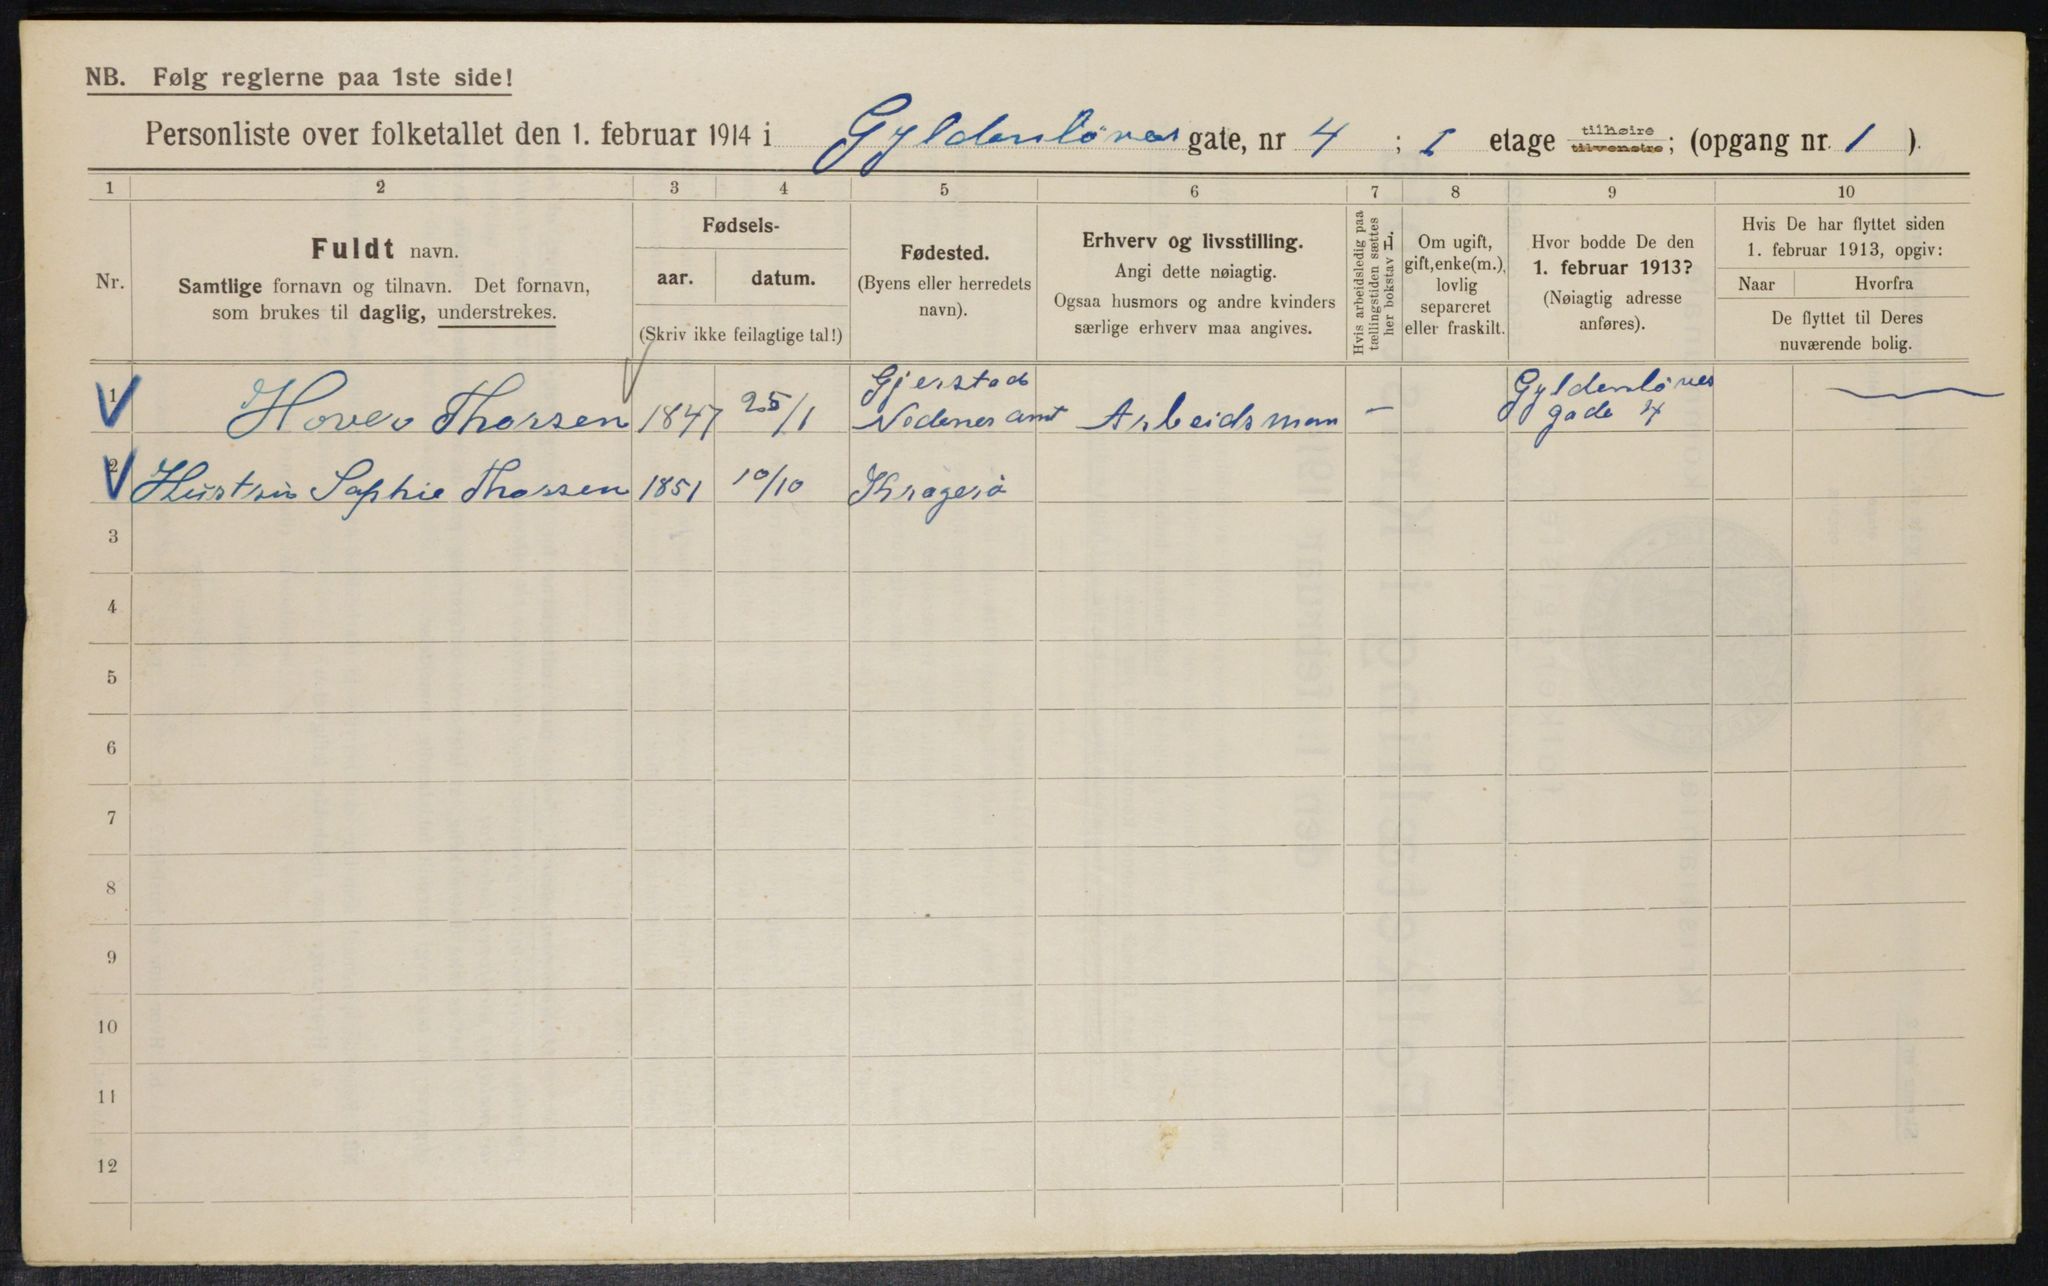 NB. Følg reglerne paa 1ste side!
Personliste over folketallet den 1. februar 1914 i Gyldenløves gate, nr 4 ; 1 etage tilhøire tilvenstre; (opgang nr. 1 ).
1 2 3 4 5 6 7 8 9 10
Nr.
Fuldt navn.
Samtlige fornavn og tilnavn. Det fornavn,
som brukes til daglig, understrekes.
Fødsels-
aar. datum.
(Skriv ikke feilagtige tal!)
Fødested.
(Byens eller herredets
navn).
Erhverv og livsstilling.
Angi dette nøiagtig.
Ogsaa husmors og andre kvinders
særlige erhverv maa angives.
Hvis arbeidsledig paa
tællingstiden sættes
her bokstav L.
Om ugift,
gift, enke(m.),
lovlig
separeret
eller fraskilt.
Hvor bodde De den
1. februar 1913?
(Nøiagtig adresse
anføres).
Hvis De har flyttet siden
1. februar 1913, opgiv:
Naar Hvorfra
De flyttet til Deres
nuværende bolig.
1 Hover Thorsen 1847 25/1 Gjerstad
Nedenes amt Arbeidsman — Gyldenløves
gade 4
2 Hustru Sophie Thorsen 1851 10/10 Kragerö
3
4
5
6
7
8
9
10
11
12